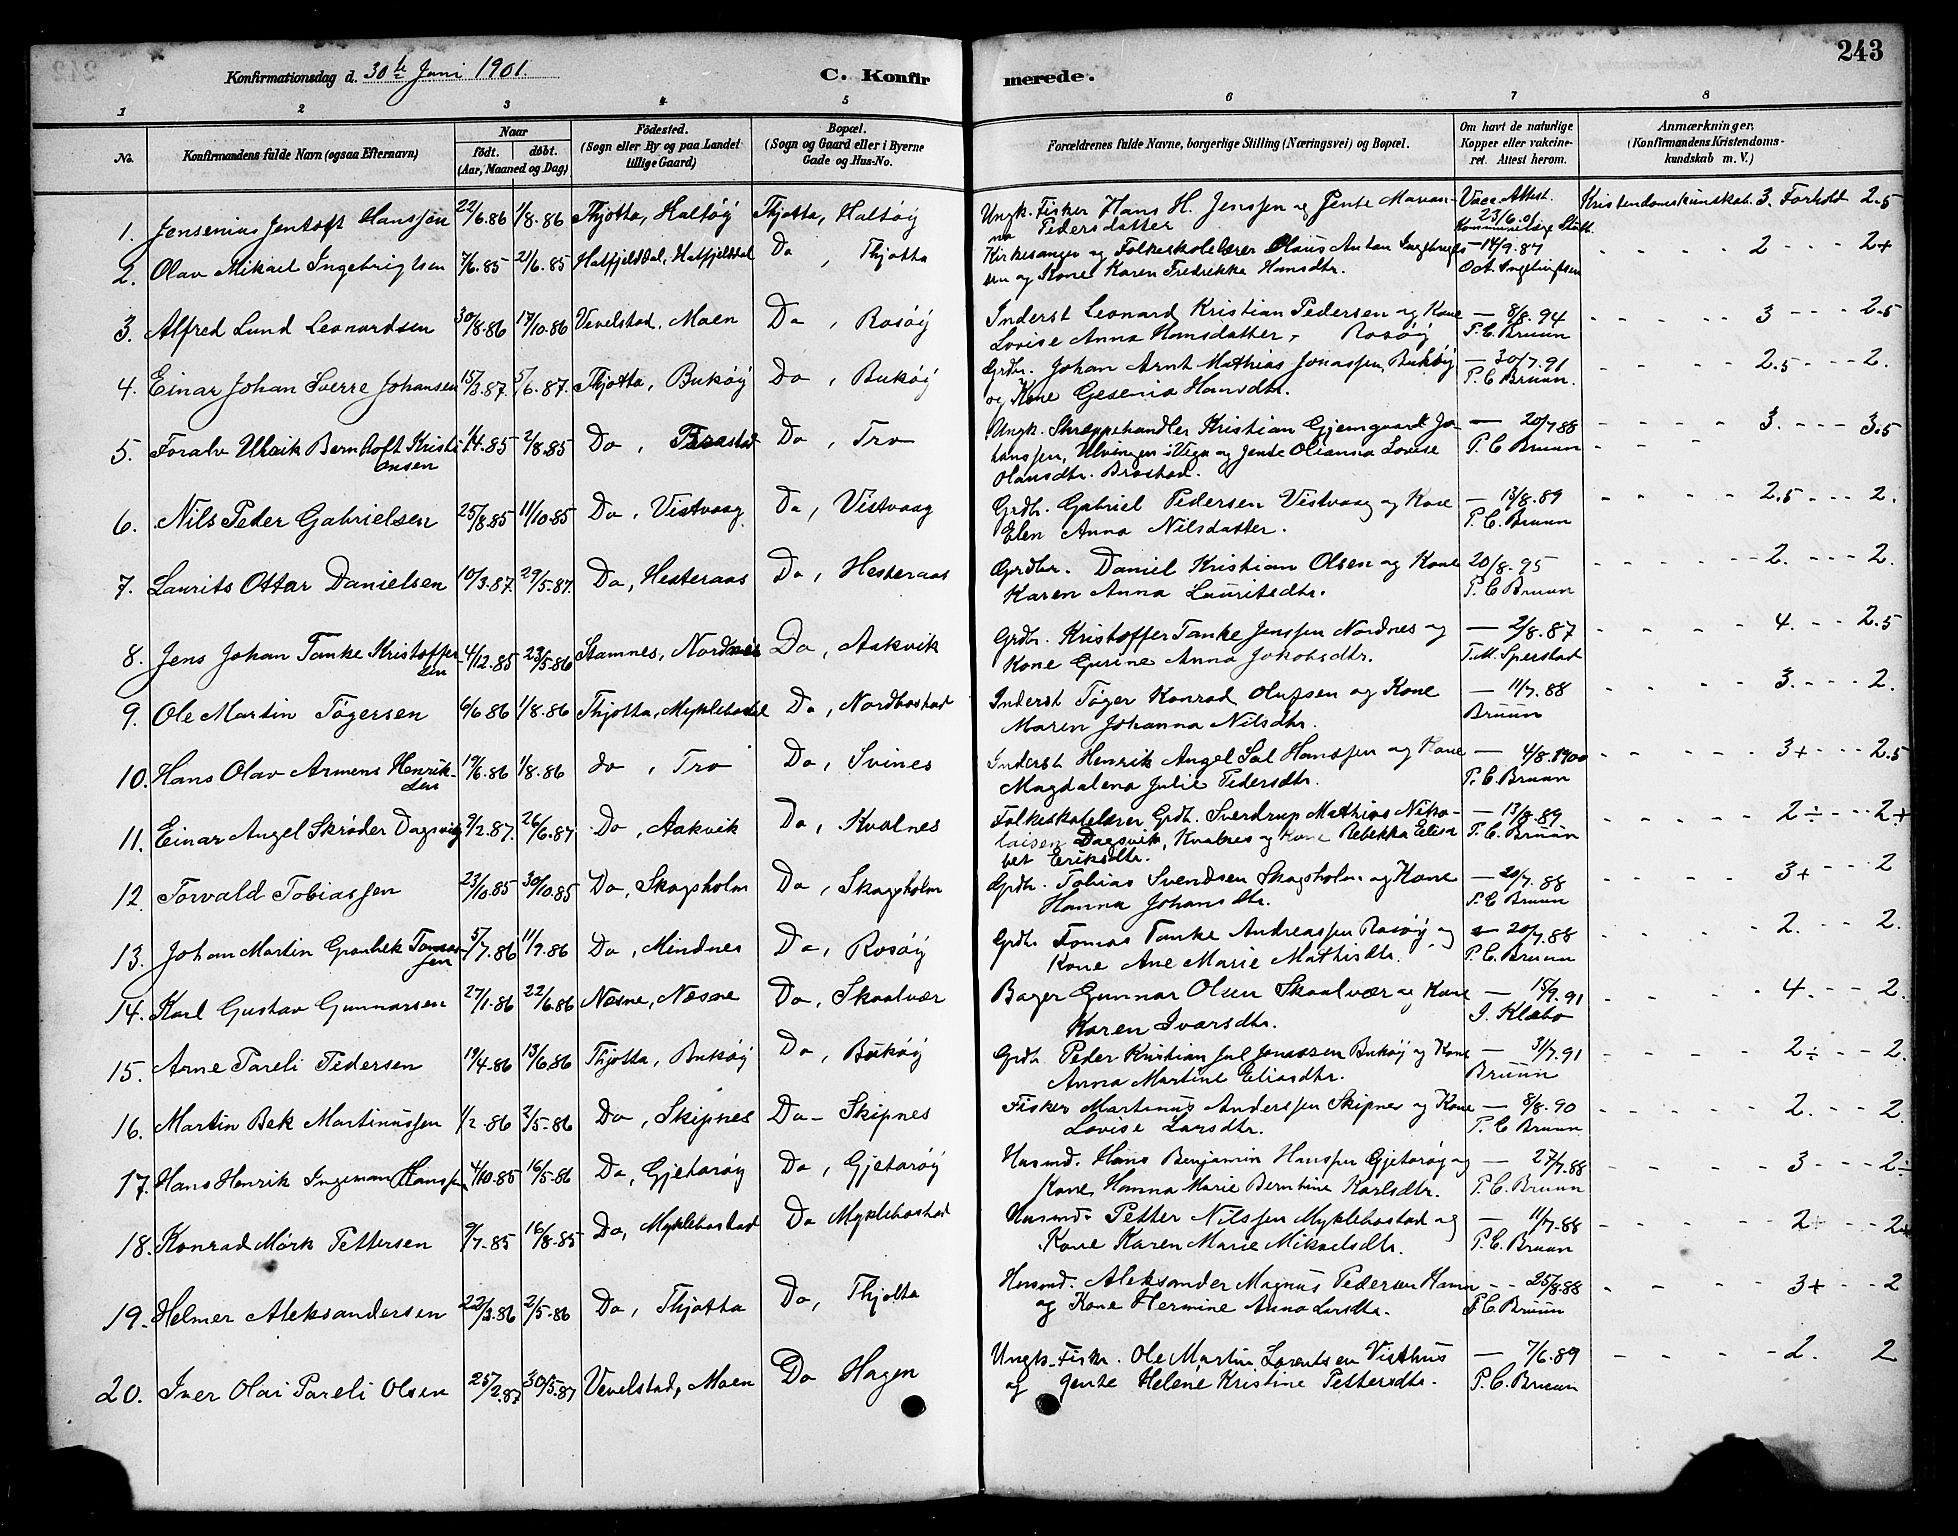 243
Konfirmationsdag d. 30te Juni 1901.
C. Konfirmerede.
1 2 3 4 5 6 7 8
No.
Konfirmandens fulde Navn (ogsaa Efternavn)
Naar
født. døbt.
(Aar, Maaned og Dag)
Fødested.
(Sogn eller By og paa Landet
tillige Gaard)
Bopæl.
(Sogn og Gaard eller i Byerne
Gade og Hus-No.
Forældrenes fulde Navne, borgerlige Stilling (Næringsvei) og Bopæl.
Om havt de naturlige
Kopper eller vakcine-
ret. Attest herom.
Anmærkninger,
(Konfirmandens Kristendoms-
kundskab m. V.)
1. Jensenius Jentoft Hanssen 22/6.86 1/8.86 Thjotta, Kaltøy Thjotta, Kaltøy Ungk. Fisker Hans H. Jenssen og Jente Marian-
na Pedersdatter Vacc. Attest. 23/6.01 Kristendomskunskab. 3. Forhold 2.5
2. Olav Mikael Ingebrigtsen 7/6.85 21/6.85 Hatfjelddal, Hatfjelddal Do, Thjotta Kirkesanger og Folkeskolelærer Olaus Anton Ingebrigt-
sen og Kone Karen Fredrikke Hansdtr. — 14/9.87
O.A. Ingebrigtsen 2 2+
3. Alfred Lund Leonardsen 30/8.86 17/10.86 Vevelstad, Moen Do, Rosøy Inderst Leonard Kristian Pedersen og Kone
Lovise Anna Hansdatter, Rosøy — 8/8.94
P. C. Bruun 3 2.5
4. Einar Johan Sverre Johansen 15/3.87. 5/6.87. Thjotta, Bukøy Do, Bukøy Grdbr. Johan Arnt Mathias Jonassen, Bukøy
og Kone Gesenia Hansdtr. — 30/7.91
P. C. Bruun. 2.5 2.
5. Toralv Ulrik Berntoft Kristi-
ansen 1/4.85 2/8.85 Do, Do, Tro Ungk. Skreppehandler Kristian Gjemgaard Jo-
hanssen, Ulvingen i Vega og Jente Olianna Lovise
Olausdtr. Brastad. — 20/7.88
P. C. Bruun 3. 3.5
6. Nils Peder Gabrielsen 25/8.85 11/10.85 Do, Vistvaag Do, Vistvaag Grdbr. Gabriel Pedersen Vistvaag og Kone
Elen Anna Nilsdatter. — 13/8.89
P. C. Bruun 2.5 2.
7. Laurits Ottar Danielsen 10/3.87. 29/5.87. Do, Hesteraas Do, Hesteraas Grdbr. Daniel Kristian Olsen og Kone
Karen Anna Lauritsdtr. 20/8.95
P. C Bruun 2. 2.
8. Jens Johan Tanke Kristoffer-
sen 4/12.85 23/5.86 Stamnes, Nordnes Do, Aakvik Grdbr. Kristoffer Tanke Jenssen Nordnes og
Kone Gurine Anna Jakobsdtr. — 2/8.87
T. M. Sperstad 4. 2.5
9. Ole Martin Tøgersen 6/6.86 1/8.86 Thjotta, Myklebostad Do, Nordbostad Inderst Tøger Konrad Olufsen og Kone
Maren Johanna Nilsdtr. — 11/7.88
Bruun 3. 2.
10. Hans Olav Armens Henrik-
sen 19/6.86 1/8.86 do, Tro Do, Svines Inderst Henrik Angel Sal Hanssen og Kone
Magdalena Julie Pedersdtr. — 4/8.1900
P. C. Bruun 3+ 2.5
11. Einar Angel Skrøder Dagsvig 9/2.87. 26/6.87 Do, Aakvik Do, Kvalnes Folkeskolelærer Grdb. Sverdrup Mathias Niko-
laisen Dagsvik, Kvalnes og Kone Rebekka Elisa-
bet Eriksdtr. — 13/8.89
P. C. Bruun 2 ÷ 2+
12. Torvald Tobiassen 23/10.85 30/10.85 Do, Skogsholm Do, Skogsholm Grdbr. Tobias Svendsen Skogsholm og Kone
Hanna Johansdtr. — 20/7.88
P. C Bruun 3+ 2
13. Johan Martin Tomas-
sen 5/7.86 11/9.86 Do, Mindnes Do, Rosøy Grdbr. Tomas Tanke Andreassen Rosøy og
Kone Ane Marie Mathisdtr. 20/7.88
P. C. Bruun 2. 2.
14. Karl Gustav Gunnarsen 27/1.86 22/6.86 Nesne, Nesne Do, Skaalvær Bager Gunnar Olsen Skaalvær og Kone
Karen Ivarsdtr. — 15/9.91
J. Klæbo 4. 2.
15. Arne Pareli Pedersen 19/4.86 13/6.86 Thjotta, Bukøy Do, Bukøy Grdbr. Peder Kristian Jul Jonassen Bukøy og Kone
Anna Martine Eliasdtr. — 31/7.91
Bruun 2 ÷ 2.
16. Martin Bek Martinussen 1/2.86 2/5.86 Do, Skipnes Do - Skipnes Fisker Martinus Anderssen Skipnes og Kone
Lovise Larsdtr. — 8/8.90
P. C Bruun 2. 2.
17. Hans Henrik Ingeman Hanssen 4/10.85 16/5.86 Do, Gjetarøy Do, Gjetarøy Husmd. Hans Benjamin Hanssen Gjetarøy og
Kone Hanna Marie Berntine Karlsdtr. — 27/7.88
P. C. Bruun 3 2÷
18. Konrad Mørk Pettersen 9/7.85 16/8.85 Do, Myklebostad Do Myklebostad Husmd. Petter Nilssen Myklebostad og
Kone Karen Marie Mikaelsdtr. — 11/7.88
P. C. Bruun 2+ 2+
19. Helmer Aleksandersen 22/3.86 2/5.86 Do, Thjotta Do, Thjotta Husmd. Aleksander Magnus Pedersen
og Kone Hermine Anna Larsdtr. — 25/8.88
P. C. Bruun 3+ 2
20. Iver Olai Pareli Olsen 25/2.87 30/5.87 Vevelstad, Moen Do Hagen Ungk. Fisker. Ole Martin Lorentsen Visthus
og Jente Helene Kristine Pettersdtr. — 7/6.89
P. C. Bruun 2. 2